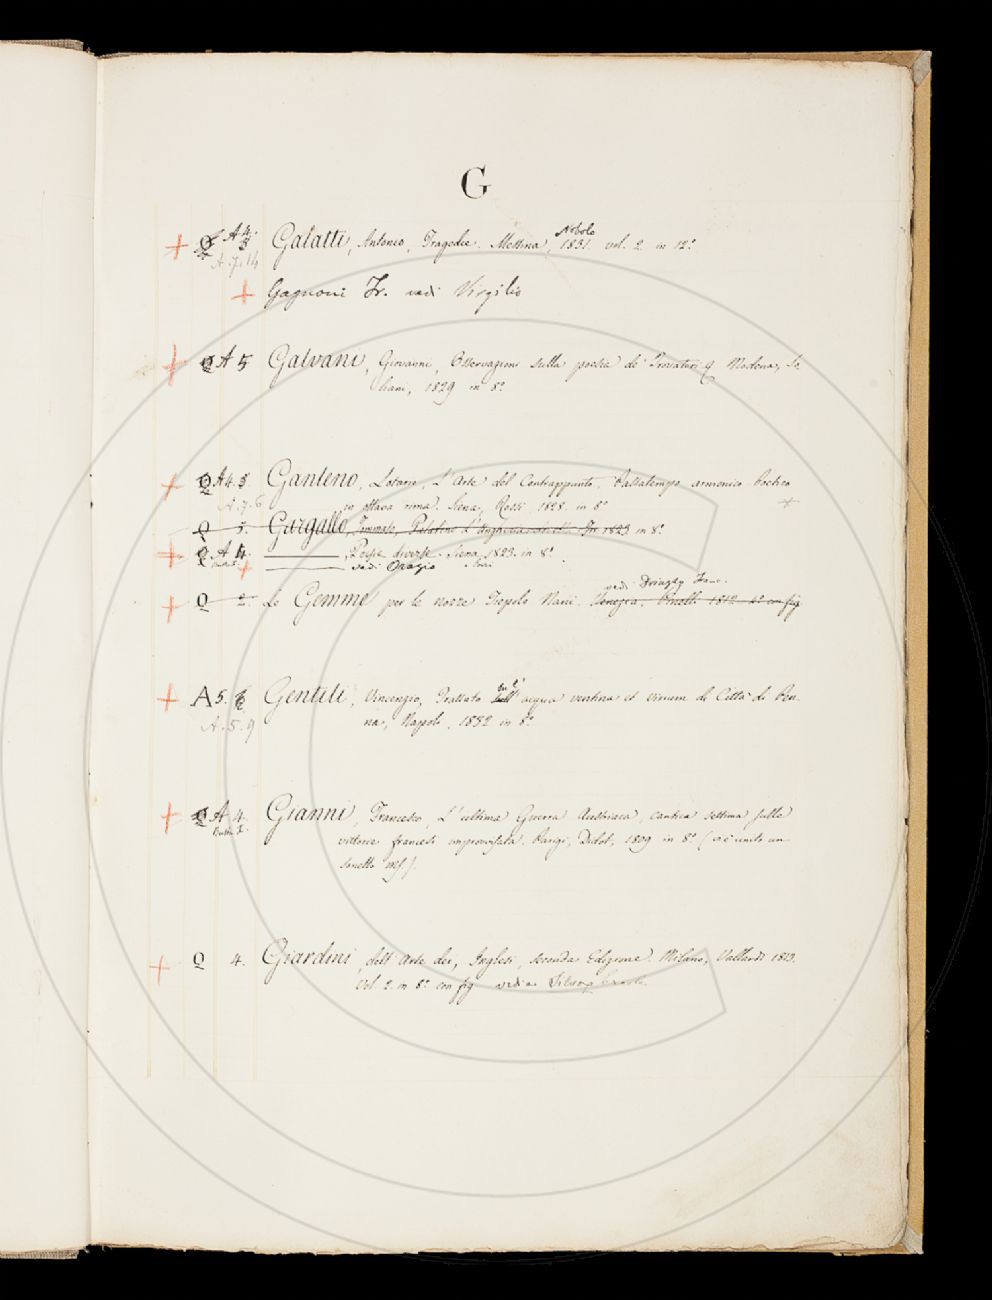 G
A 4.
Nobolo
Q 3 Galatti, Antonio, Tragedie. Messina, 1831. vol. 2 in 12°
A.7.14
Gagnoni Fr. vedi Virgilio
Q A 5 Galvani, Giovanni, Osservazioni sulla poesia de' Trovatori Modena, So
liani, 1829 in 8°
Q A 4. 3 Ganteno, Lotario, L'Arte del Contrappunto. Passatempo armonico-Poetico
A.7.6 in ottava rima. Siena, Rossi 1828. in 8°
Q 5. Gargallo, Tommaso, 1823 in 8°
Q A 4. Poesie diverse. Siena 1823. in 8°
vedi Orazio
vedi
Q 2. Le Gemme per le nozze Tiepolo Nani. Venezia, 1812 4° con fig
A 5. Gentili, Vincenzio, Trattato acqua ventina et virium di Città di Pen
A.5.9 na, Napoli, 1832 in 8°
Q A 4. Gianni, Francesco, L'ultima Guerra Austriaca, cantica settima sulle
vittorie francesi improvvisata. Parigi, Didot, 1809 in 8° (vi è unito un
sonetto ms.).
Q 4. Giardini, dell'Arte dei, Inglesi, seconda Edizione. Milano, Vallardi 1813.
Vol 2. in 8° con fig vedi